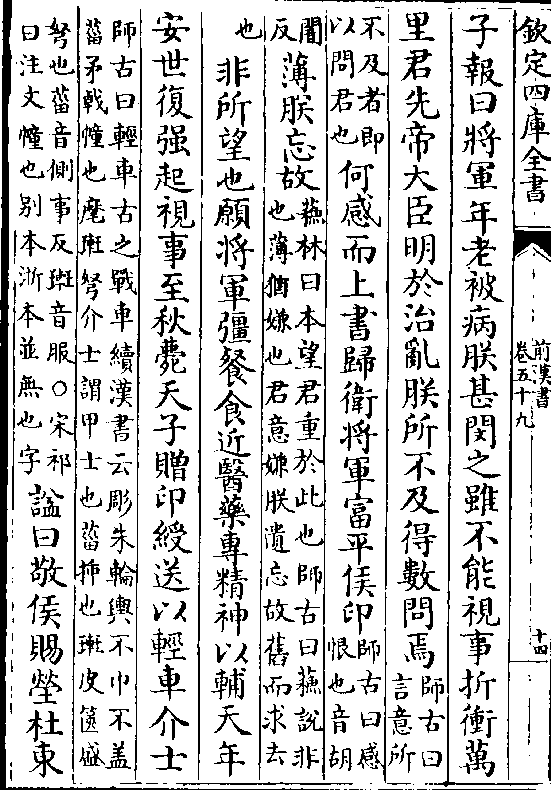 欽定四庫全書
前漢書
卷五十九
十四
子報曰將軍年老被病朕甚閔之雖不能視事折衝萬
里君先帝大臣明於治亂朕所不及得數問焉師古曰言意所
不及者即以問君也何感而上書歸衛將軍富平侯印師古曰感恨也音胡
闇反薄朕忘故蘇林曰本望君重於此也師古曰蘇說非也薄猶嫌也君意嫌朕遺忘故舊而求去
也非所望也願將軍彊餐食近醫藥專精神以輔天年
安世復强起視事至秋薨天子贈印綬送以輕車介士
師古曰輕車古之戰車續漢書云彫朱輪輿不巾不盖
菑矛戟幢也麾𤦲弩介士謂甲士也菑揷也𤦲皮篋盛
弩也菑音側事反𤦲音服○宋祁
曰注文幢也别本浙本並無也字
諡曰敬侯賜塋杜東